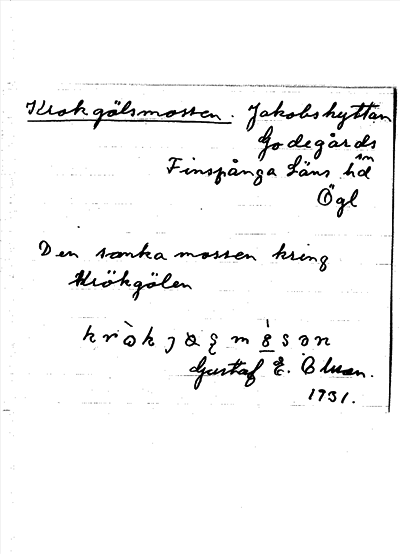 Krokgölsmossen. Jakobshyttan
Godegårds
sn
Finspånga Läns hd
Ögl
Den sanka mossen kring
Krökgölen
Gustaf E. Olsson.
1931.